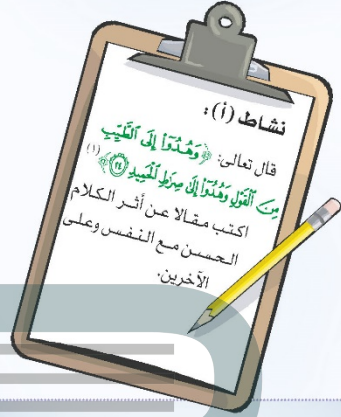 نشاط (أ):
قال تعالى: ﴿وَهُدُوٓاْ إِلَى ٱلطَّيِّبِ
مِنَ ٱلۡقَوۡلِ وَهُدُوٓاْ إِلَىٰ صِرَٰطِ ٱلۡحَمِيدِ ٢٤﴾(١)
اكتب مقالا عن أثر الكلام
الحسن مع النفس وعلى
الآخرين.